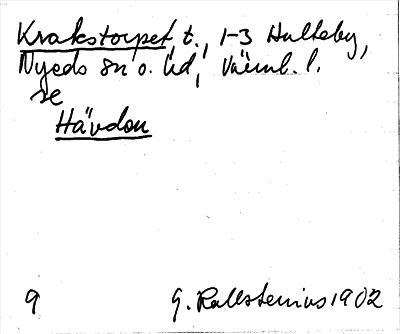 Krakstorpet, t., 1-3 Hulteby,
Nyeds sn o. hd, Värml. l.
se
Hävdon
9 G. Kallstenius 1902